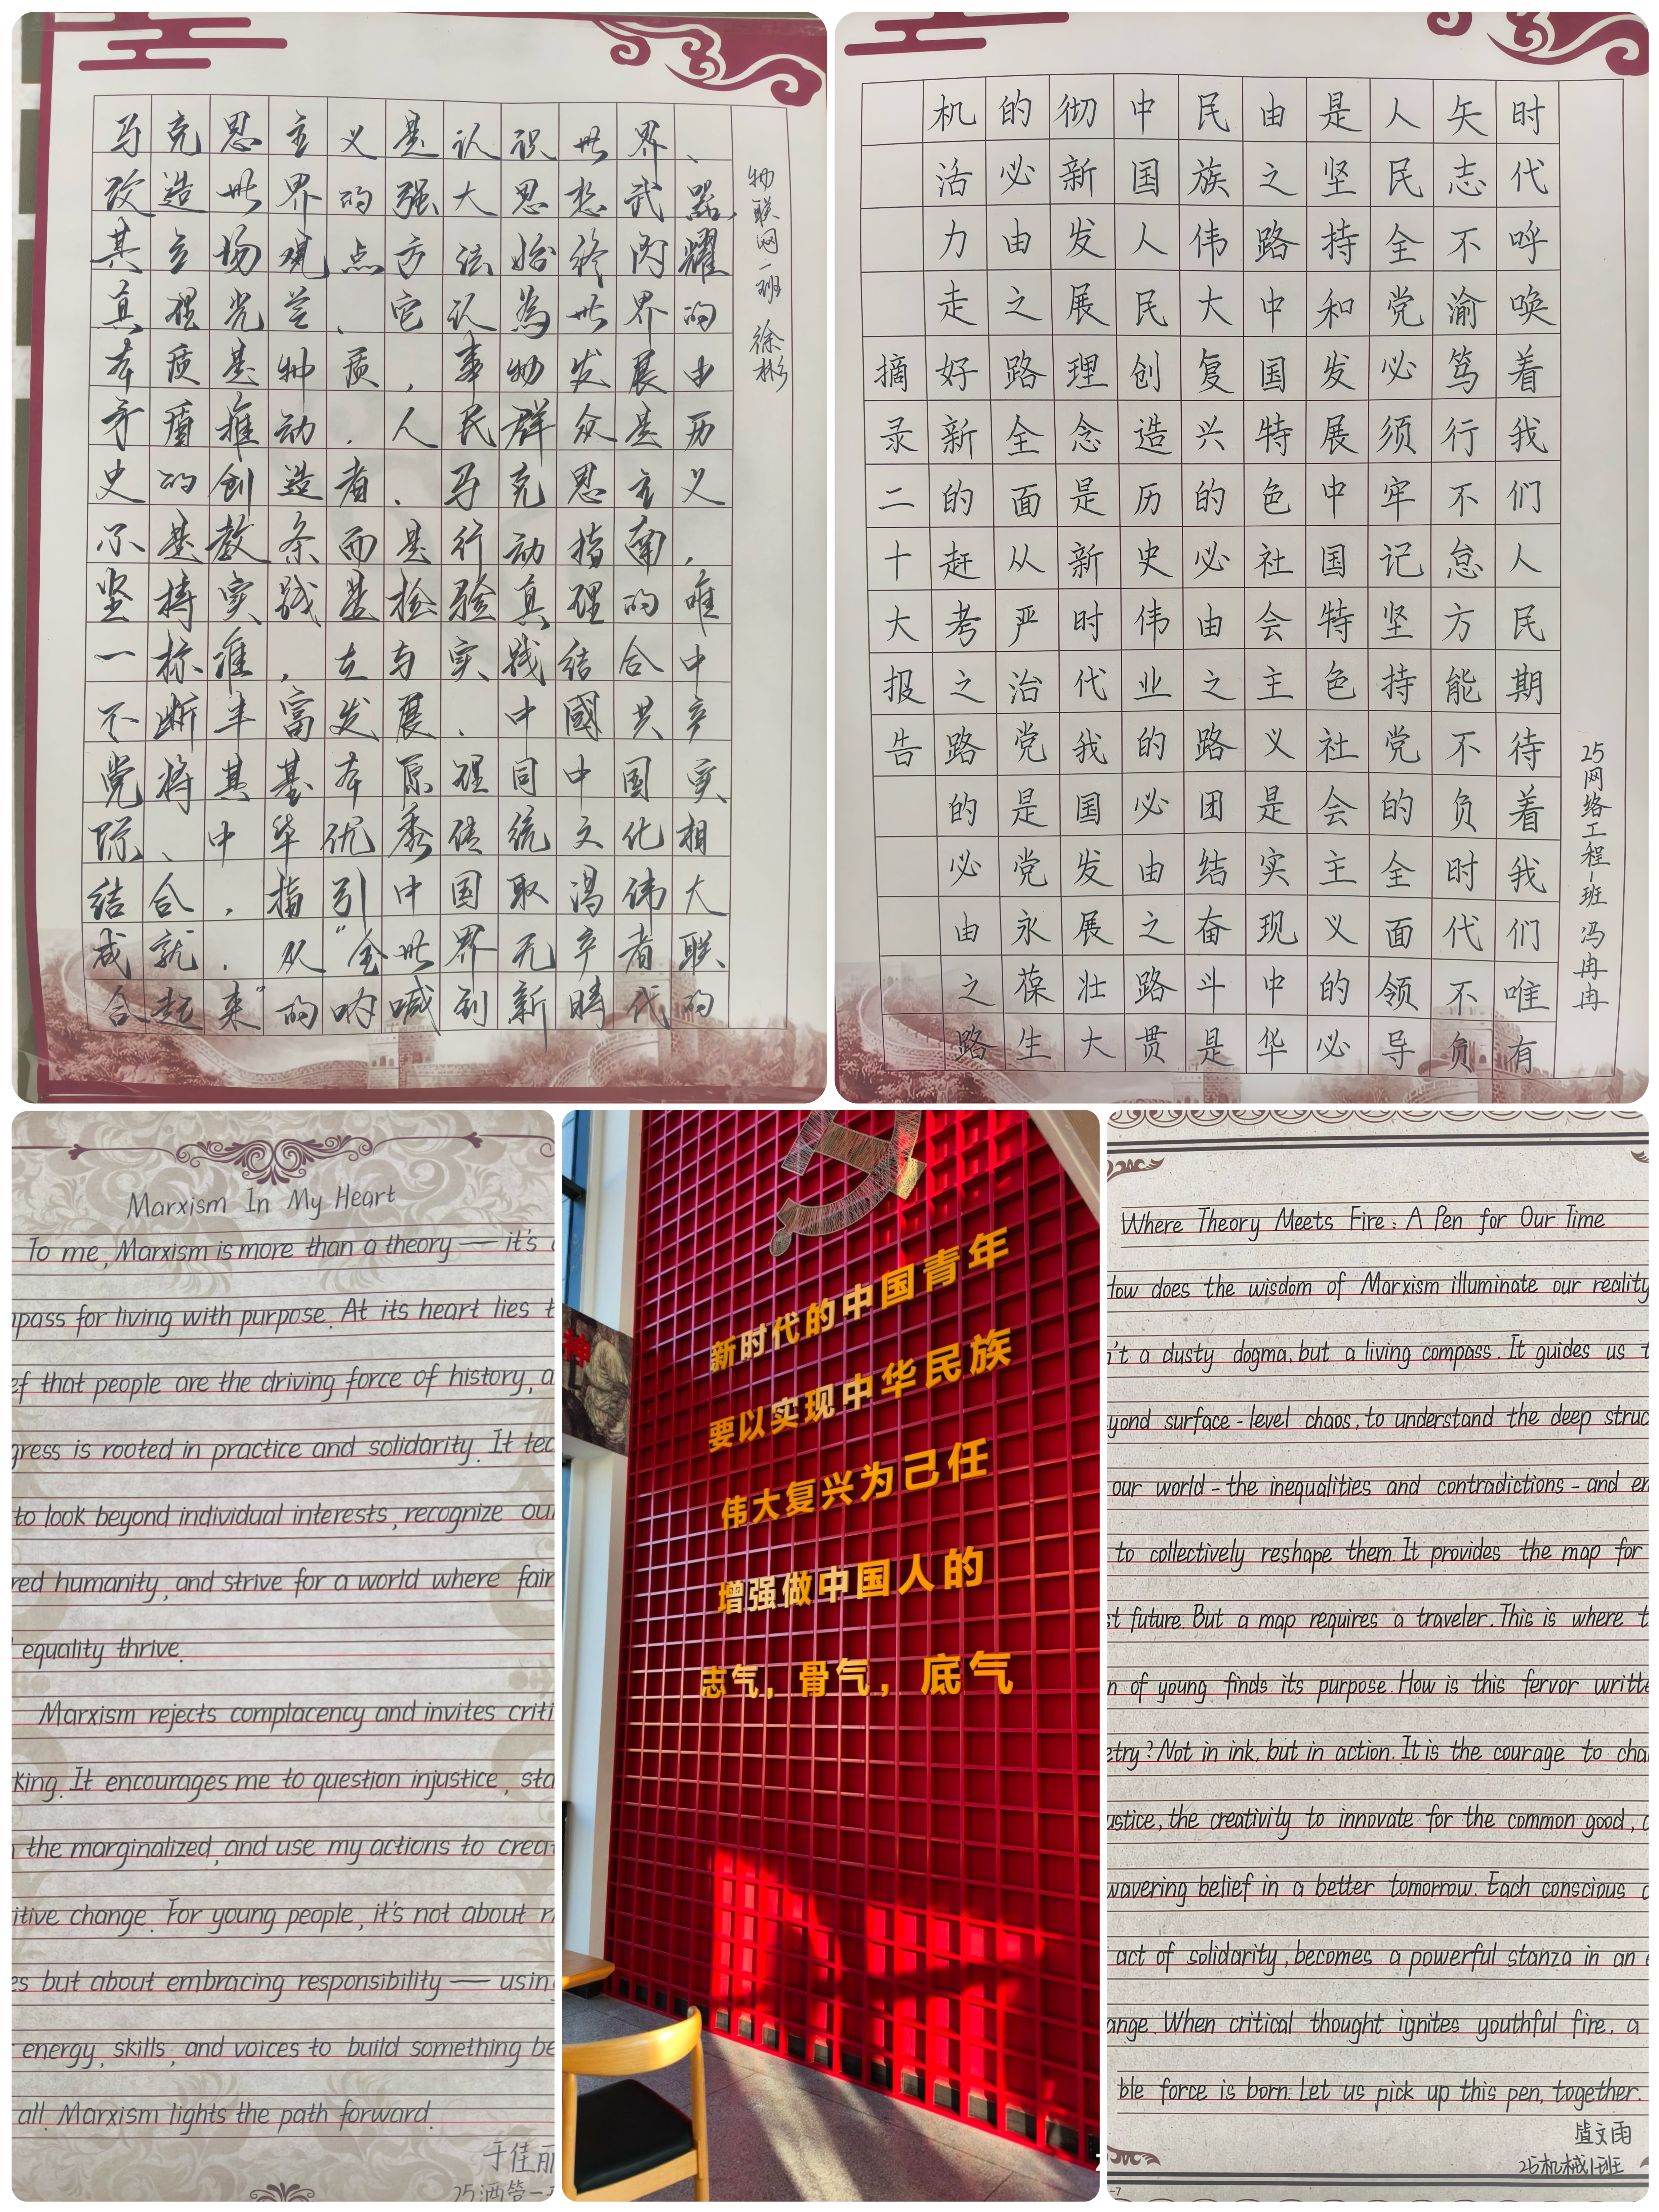 马克思主义是认识世界、
改造世界的强大思想武器,
其立场观点方法始终闪耀
真理光芒.它认為世界的
本质是物质,事物发展由
矛盾推动.人民群众是历
史的创造者.马克思主义
不是教条而是行动指南,
坚持实践是检验真理的唯
一标准,在与实践结合中
不断丰富发展.中國共产
党将其基本原理同中国实
际、中华优秀传统文化相
结合,指引中国取得伟大
成就.从"全世界无产者联
合起来"的呐喊到新时代的
物联网一班 徐彬
25网络工程一班 冯冉冉
时代呼唤着我们人民期待着我们唯有
矢志不渝笃行不怠方能不负时代不负
人民全党必须牢记坚持党的全面领导
是坚持和发展中国特色社会主义的必
由之路中国特色社会主义是实现中华
民族伟大复兴的必由之路团结奋斗是
中国人民创造历史伟业的必由之路贯
彻新发展理念是新时代我国发展壮大
的必由之路全面从严治党是党永葆生
机活力走好新的赶考之路的必由之路
摘录二十大报告
Marxism In My Heart
To me, Marxism is more than a theory — it's
pass for living with purpose. At its heart lies
that people are the driving force of history,
gress is rooted in practice and solidarity. It
to look beyond individual interests, recognize
red humanity, and strive for a world where fair
equality thrive.
Marxism rejects complacency and invites criti
king. It encourages me to question injustice,
the marginalized, and use my actions to
itive change. For young people, it's not about
es but about embracing responsibility — usin
energy, skills, and voices to build something be
all. Marxism lights the path forward.
于佳丽
神
新时代的中国青年
要以实现中华民族
伟大复兴为己任
增强做中国人的
志气，骨气，底气
Where Theory Meets Fire: A Pen for Our Time
How does the wisdom of Marxism illuminate our reality
n't a dusty dogma, but a living compass. It guides us
yond surface-level chaos, to understand the deep struc
our world - the inequalities and contradictions - and
to collectively reshape them. It provides the map for
st future. But a map requires a traveler. This is where
n of young finds its purpose. How is this fervor writt
etry? Not in ink, but in action. It is the courage to cha
ustice, the creativity to innovate for the common good,
wavering belief in a better tomorrow. Each conscious
act of solidarity, becomes a powerful stanza in an
ange. When critical thought ignites youthful fire, a
ble force is born. Let us pick up this pen, together.
文雨
25机械1班